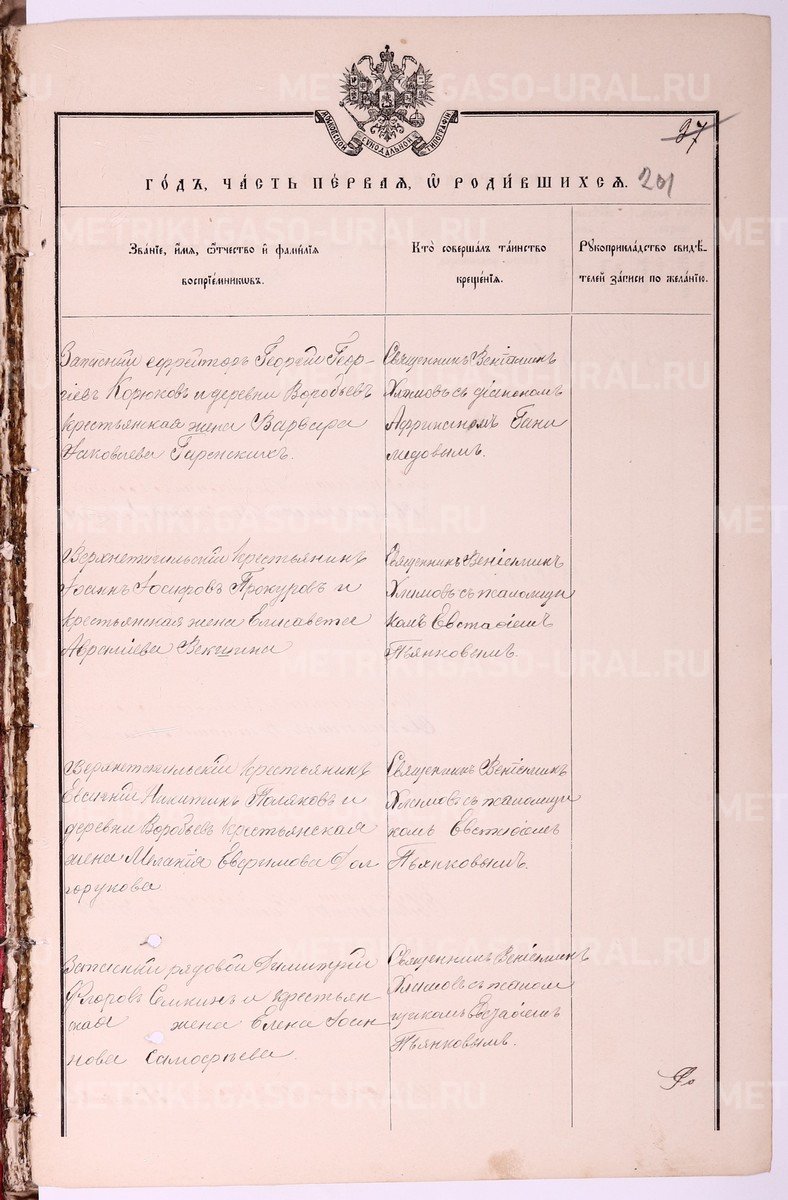 МОСКОВСКОЙ СѴНОДАЛЬНОЙ ТИПОГРАФІИ
37
ГО́ДЪ, ЧА́СТЬ ПЕ́РВАЯ, Ѡ҆ РОДИ́ВШИХСѦ. 201
Зва́нїе, и҆́мя, ѻ҆́тчество и҆ фами́лїя
воспрїе́мникѡвъ.
Кто̀ соверша́лъ та́инство
креще́нїѧ.
Рꙋкоприкла́дство свидѣ́-
телей за́писи по жела́нїю.
Запасный ефрейторъ Георгій Геор-
гіевъ Корюковъ и деревни Воробьевъ
крестьянская жена Варвара
Яковлева Гаренскихъ.
Священникъ Веніаминъ
Хлыновъ съ діакономъ
Африканомъ
Верхнетагильскій крестьянинъ
Іоаннъ Іосифовъ Прокуровъ и
крестьянская жена Елисавета
Векшина
Священникъ Веніаминъ
Хлыновъ съ псаломщи
комъ Евстафіемъ
Пьянковымъ.
Верхнетагильскій крестьянинъ
Евгеній Никитинъ Поляковъ и
деревни Воробьевъ крестьянская
жена Меланія Евфимова Дол
горукова
Священникъ Веніаминъ
Хлыновъ съ псаломщи
комъ Евстафіемъ
Пьянковымъ.
Запасный рядовой Димитрій
Флоровъ Семкинъ и крестьян-
ская жена Елена Іоан-
нова
Священникъ Веніаминъ
Хлыновъ съ псалом
щикомъ Евстафіемъ
Пьянковымъ.
METRIKI.GASO-URAL.RU